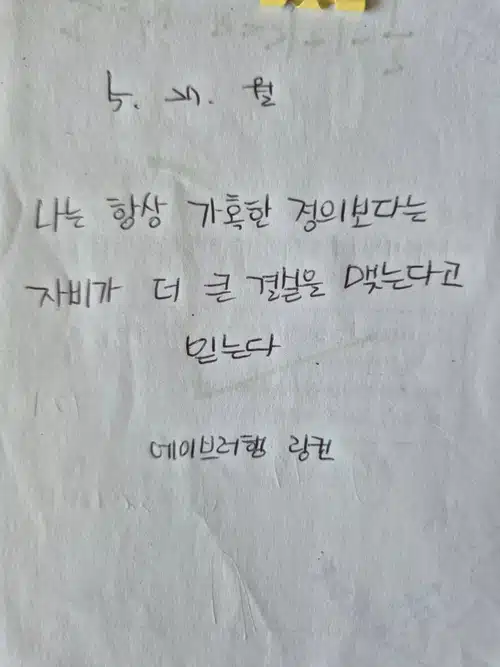 나는 항상 가혹한 정의보다는
자비가 더 큰 결실을 맺는다고
믿는다
에이브러햄 링컨